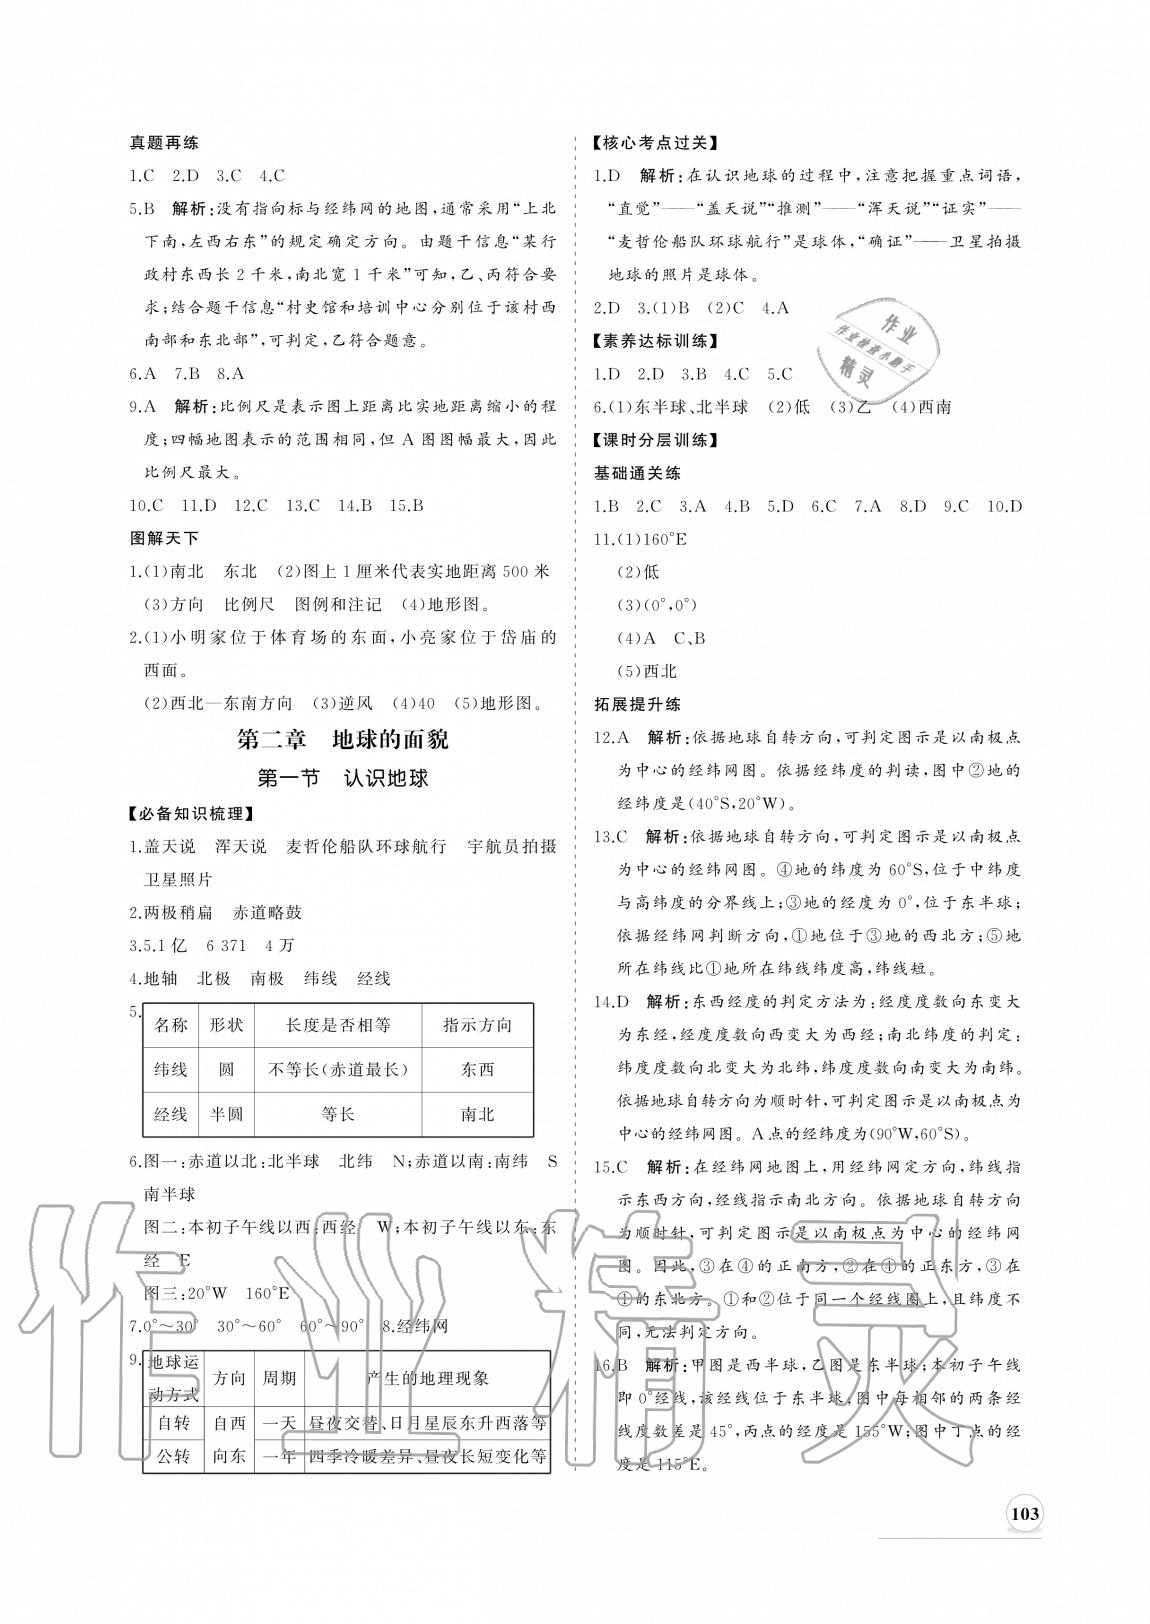 真题再练
1.C　2.D　3.C　4.C
5.B　解析:没有指向标与经纬网的地图,通常采用“上北
下南,左西右东”的规定确定方向。由题干信息“某行
政村东西长 2 千米,南北宽 1 千米”可知,乙、丙符合要
求;结合题干信息“村史馆和培训中心分别位于该村西
南部和东北部”,可判定,乙符合题意。
6.A　7.B　8.A
9.A　解析:比例尺是表示图上距离比实地距离缩小的程
度;四幅地图表示的范围相同,但 A 图图幅最大,因此
比例尺最大。
10.C　11.D　12.C　13.C　14.B　15.B
图解天下
1.(1)南北　东北　(2)图上 1 厘米代表实地距离 500 米
(3)方向　比例尺　图例和注记　(4)地形图。
2.(1)小明家位于体育场的东面,小亮家位于岱庙的
西面。
(2)西北—东南方向　(3)逆风　(4)40　(5)地形图。
第二章　地球的面貌
第一节　认识地球
【必备知识梳理】
1.盖天说　浑天说　麦哲伦船队环球航行　宇航员拍摄
卫星照片
2.两极稍扁　赤道略鼓
3.5.1 亿　6 371　4 万
4.地轴　北极　南极　纬线　经线
5.
名称　形状　长度是否相等　指示方向
纬线　圆　不等长(赤道最长)　东西
经线　半圆　等长　南北
6.图一:赤道以北:北半球　北纬　N;赤道以南:南纬　S
南半球
图二:本初子午线以西:西经　W;本初子午线以东:东
经　E
图三:20°W　160°E
7.0°～30°　30°～60°　60°～90°　8.经纬网
9.
地球运动方式　方向　周期　产生的地理现象
自转　自西　一天　昼夜交替、日月星辰东升西落等
公转　向东　一年　四季冷暖差异、昼夜长短变化等
【核心考点过关】
1.D　解析:在认识地球的过程中,注意把握重点词语,
“直觉”——“盖天说”“推测”——“浑天说”“证实”——
“麦哲伦船队环球航行”是球体,“确证”——卫星拍摄
地球的照片是球体。
2.D　3.(1)B　(2)C　4.A
【素养达标训练】
1.D　2.D　3.B　4.C　5.C
6.(1)东半球、北半球　(2)低　(3)乙　(4)西南
【课时分层训练】
基础通关练
1.B　2.C　3.A　4.B　5.D　6.C　7.A　8.D　9.C　10.D
11.(1)160°E
(2)低
(3)(0°,0°)
(4)A　C、B
(5)西北
拓展提升练
12.A　解析:依据地球自转方向,可判定图示是以南极点
为中心的经纬网图。依据经纬度的判读,图中②地的
经纬度是(40°S,20°W)。
13.C　解析:依据地球自转方向,可判定图示是以南极点
为中心的经纬网图。④地的纬度为 60°S,位于中纬度
与高纬度的分界线上;③地的经度为 0°,位于东半球;
依据经纬网判断方向,①地位于③地的西北方;⑤地
所在纬线比①地所在纬线纬度高,纬线短。
14.D　解析:东西经度的判定方法为:经度度数向东变大
为东经,经度度数向西变大为西经;南北纬度的判定:
纬度度数向北变大为北纬,纬度度数向南变大为南纬。
依据地球自转方向为顺时针,可判定图示是以南极点为
中心的经纬网图。A 点的经纬度为(90°W,60°S)。
15.C　解析:在经纬网地图上,用经纬网定方向,纬线指
示东西方向,经线指示南北方向。依据地球自转方向
为顺时针,可判定图示是以南极点为中心的经纬网
图。因此,③在④的正南方,②在④的正东方,③在
①的东北方。①和②位于同一个经线圈上,且纬度不
同,无法判定方向。
16.B　解析:甲图是西半球,乙图是东半球;本初子午线
即 0°经线,该经线位于东半球,图中每相邻的两条经
线度数差是 45°,丙点的经度是 155°W;图中丁点的经
度是 115°E。
103
作业精灵
作业
作业检查小助手
精灵